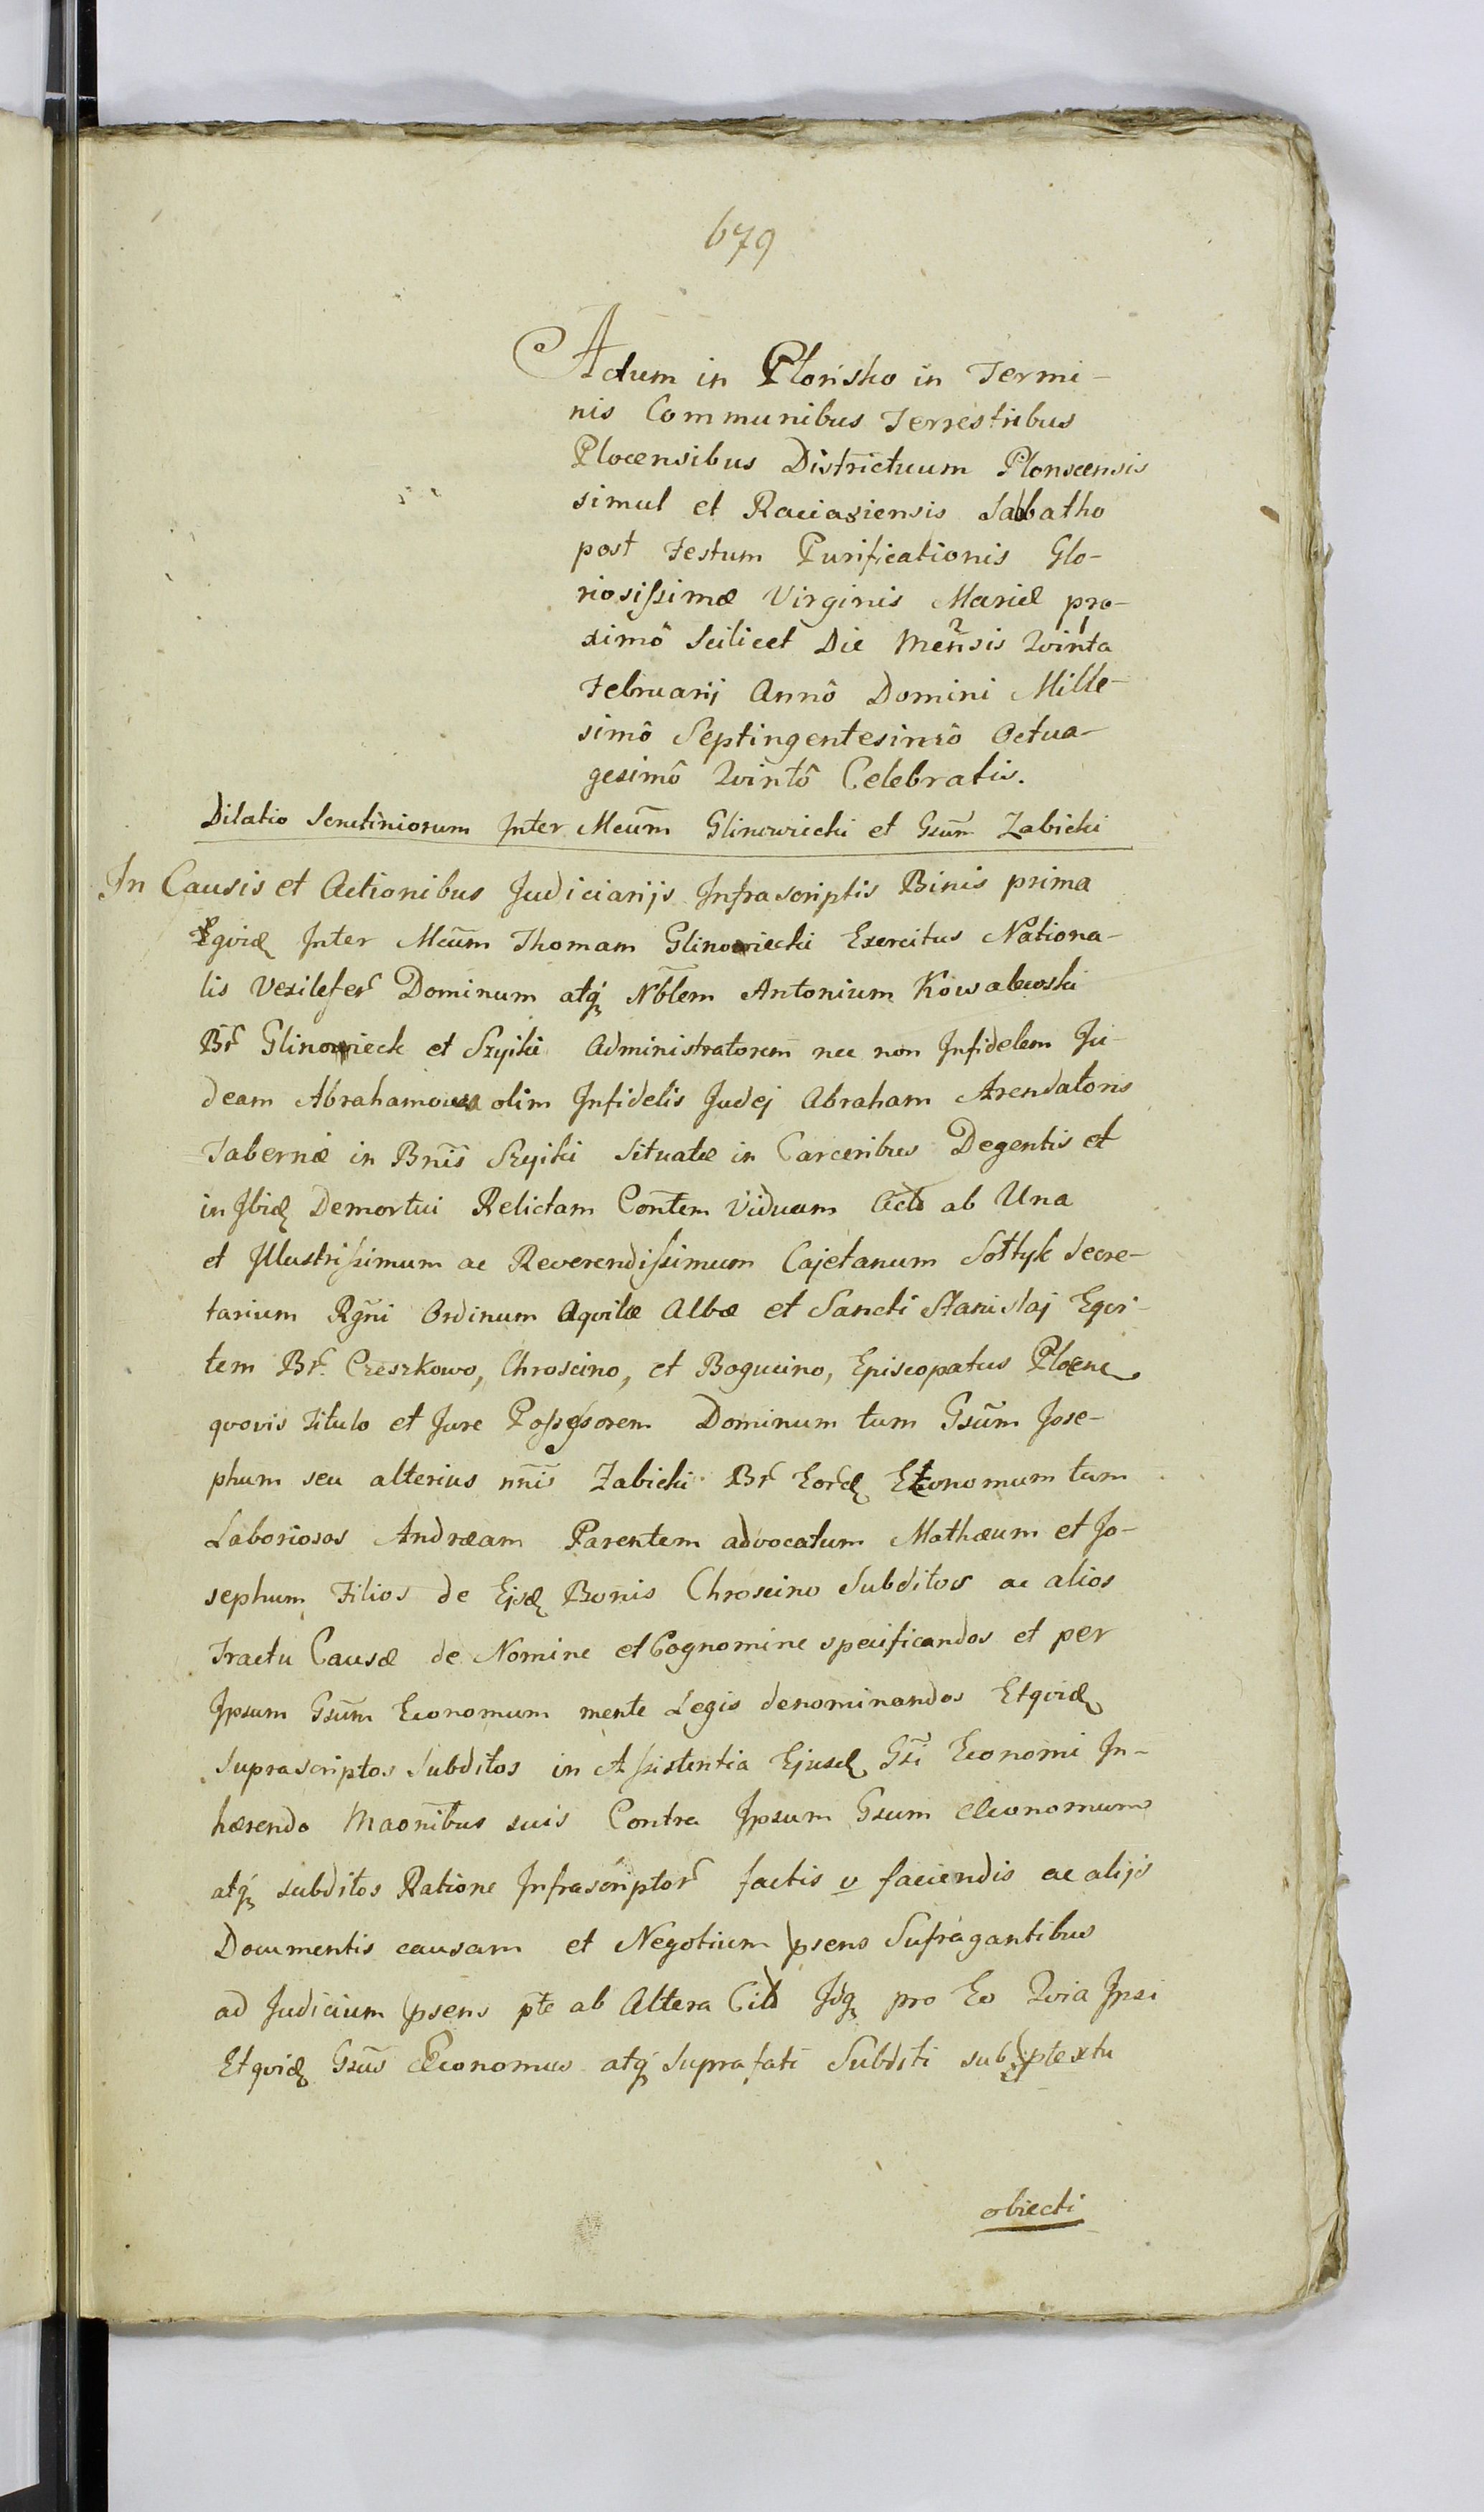 679
Actum in Płońsko in Termi-
nis Communibus Terrestribus
Plocensibus Districtuum Plonscensis
simul et Raciaziensis Sabbatho
post Festum Purificationis Glo-
riosissimæ Virginis Mariæ pro-
ximô Scilicet Die Mensis Qvinta
Februarij Annô Domini Mille-
simô Septingentesimô Octua-
gesimô Qvintô Celebratis.
Dilatio Scrutiniorum Inter Mcum̄ Glinowiecki et Gsum̄ Zabicki
In Causis et Actionibus Judiciarijs Infrascriptis Binis prima
Eqvidȩ Inter Mcum̄ Thomam Glinowiecki Exercitus Nationa-
lis Vexilefer Dominum atq́ Nb̄lem Antonium Kowalewski
Br̄ Glinowieck et Szyiki Administratorem nec non Infidelem Ju-
deam Abrahamowa olim Infidelis Judej Abraham Arendatoris
Tabernæ in Bnīs Szyiki Situatæ in Carceribus Degentis et
in Ibidȩ Demortui Relictam Con̄tem Viduam Actō ab Una
et Illustrissimum ac Reverendissimum Cajetanum Sołtyk Secre-
tarium Rḡni Ordinum Aqvilæ Albæ et Sancti Stanislaj Eqvi-
tem Br̄ Czeszkowo, Chroscino, et Bogucino, Episcopatus Plocens
qvovis Titulo et Jure Possessorem Dominum tum Gsum̄ Jose-
phum seu alterius nn̄is Zabicki Br̄ Eordȩ Economum tum
Laboriosos Andræam Parentem advocatum Mathæum et Jo-
sephum Filios de Ejsdȩ Bonis Chroscino Subditos ac alios
Tractu Causæ de Nomine et Cognomine specificandos et per
Ipsum Gsum̄ Economum mente Legis denominandos Etqvidȩ
Suprascriptos Subditos in Assistentia Ejusdȩ Gsī Economi In-
hærendo Maon̄ibus suis Contra Ipsum Gsum Æconomum
atq́ subditos Ratione Infrascriptor̄ factis v faciendis ac alijs
Documentis causam et Negotium psens Sufragantibus
ad Judicium psens pte ab Altera Citō Idq pro Eo Qvia Ipsi
Etqvidȩ Gsus̄ Æconomus atq́ suprafati Subditi sub ptextu
obiecti